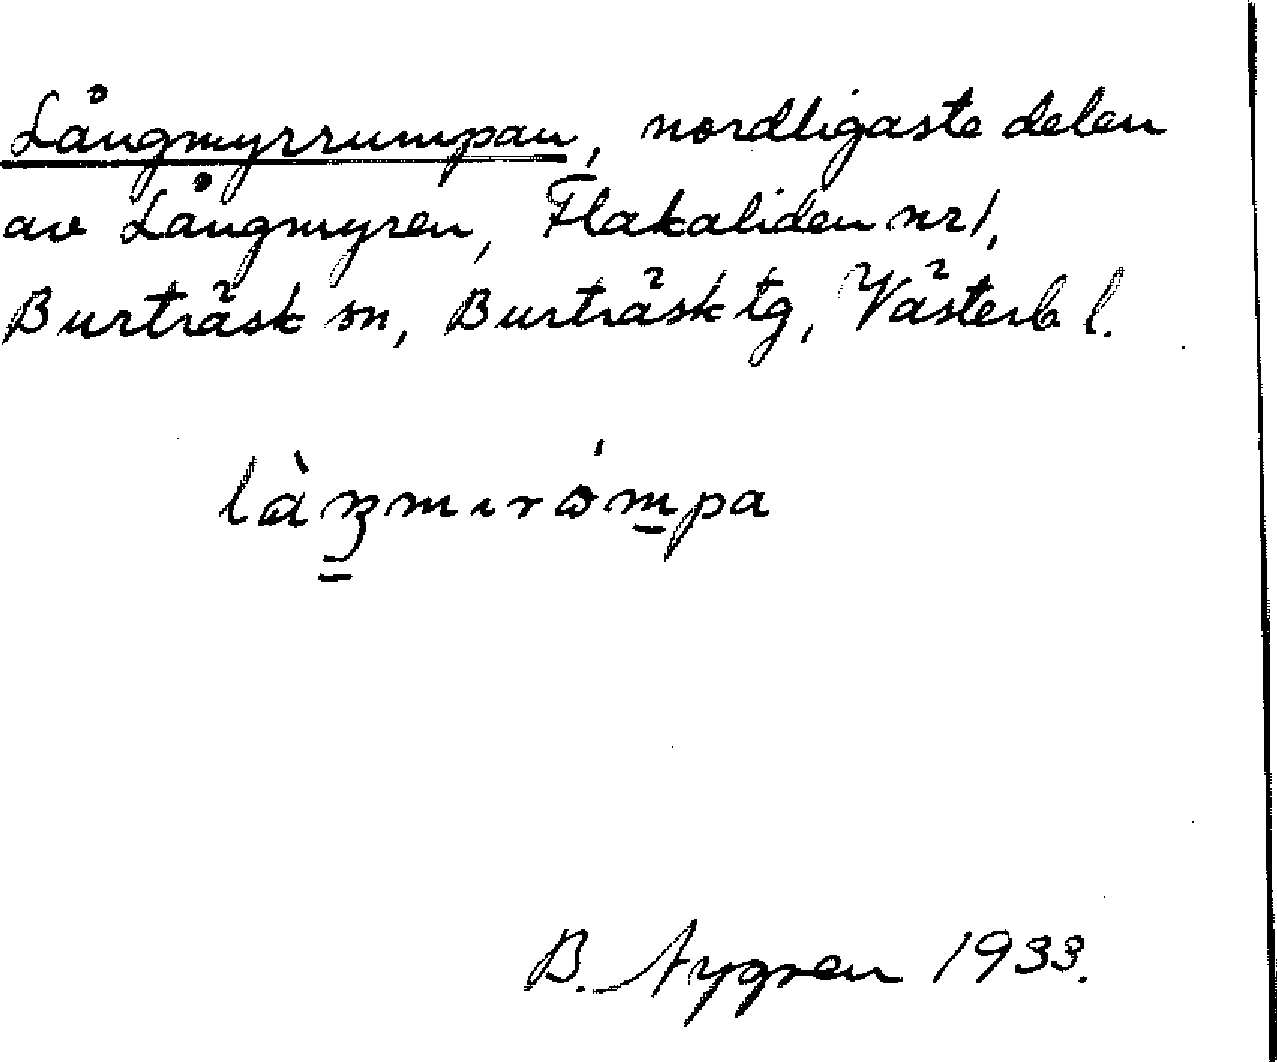 Långmyrrumpan, nordligaste delen
av Långmyren, Flakaliden nr 1,
Burträsk sn, Burträsk tg, Västerb l.
là̱ŋmıròm̱pa
B. Nygren 1933.